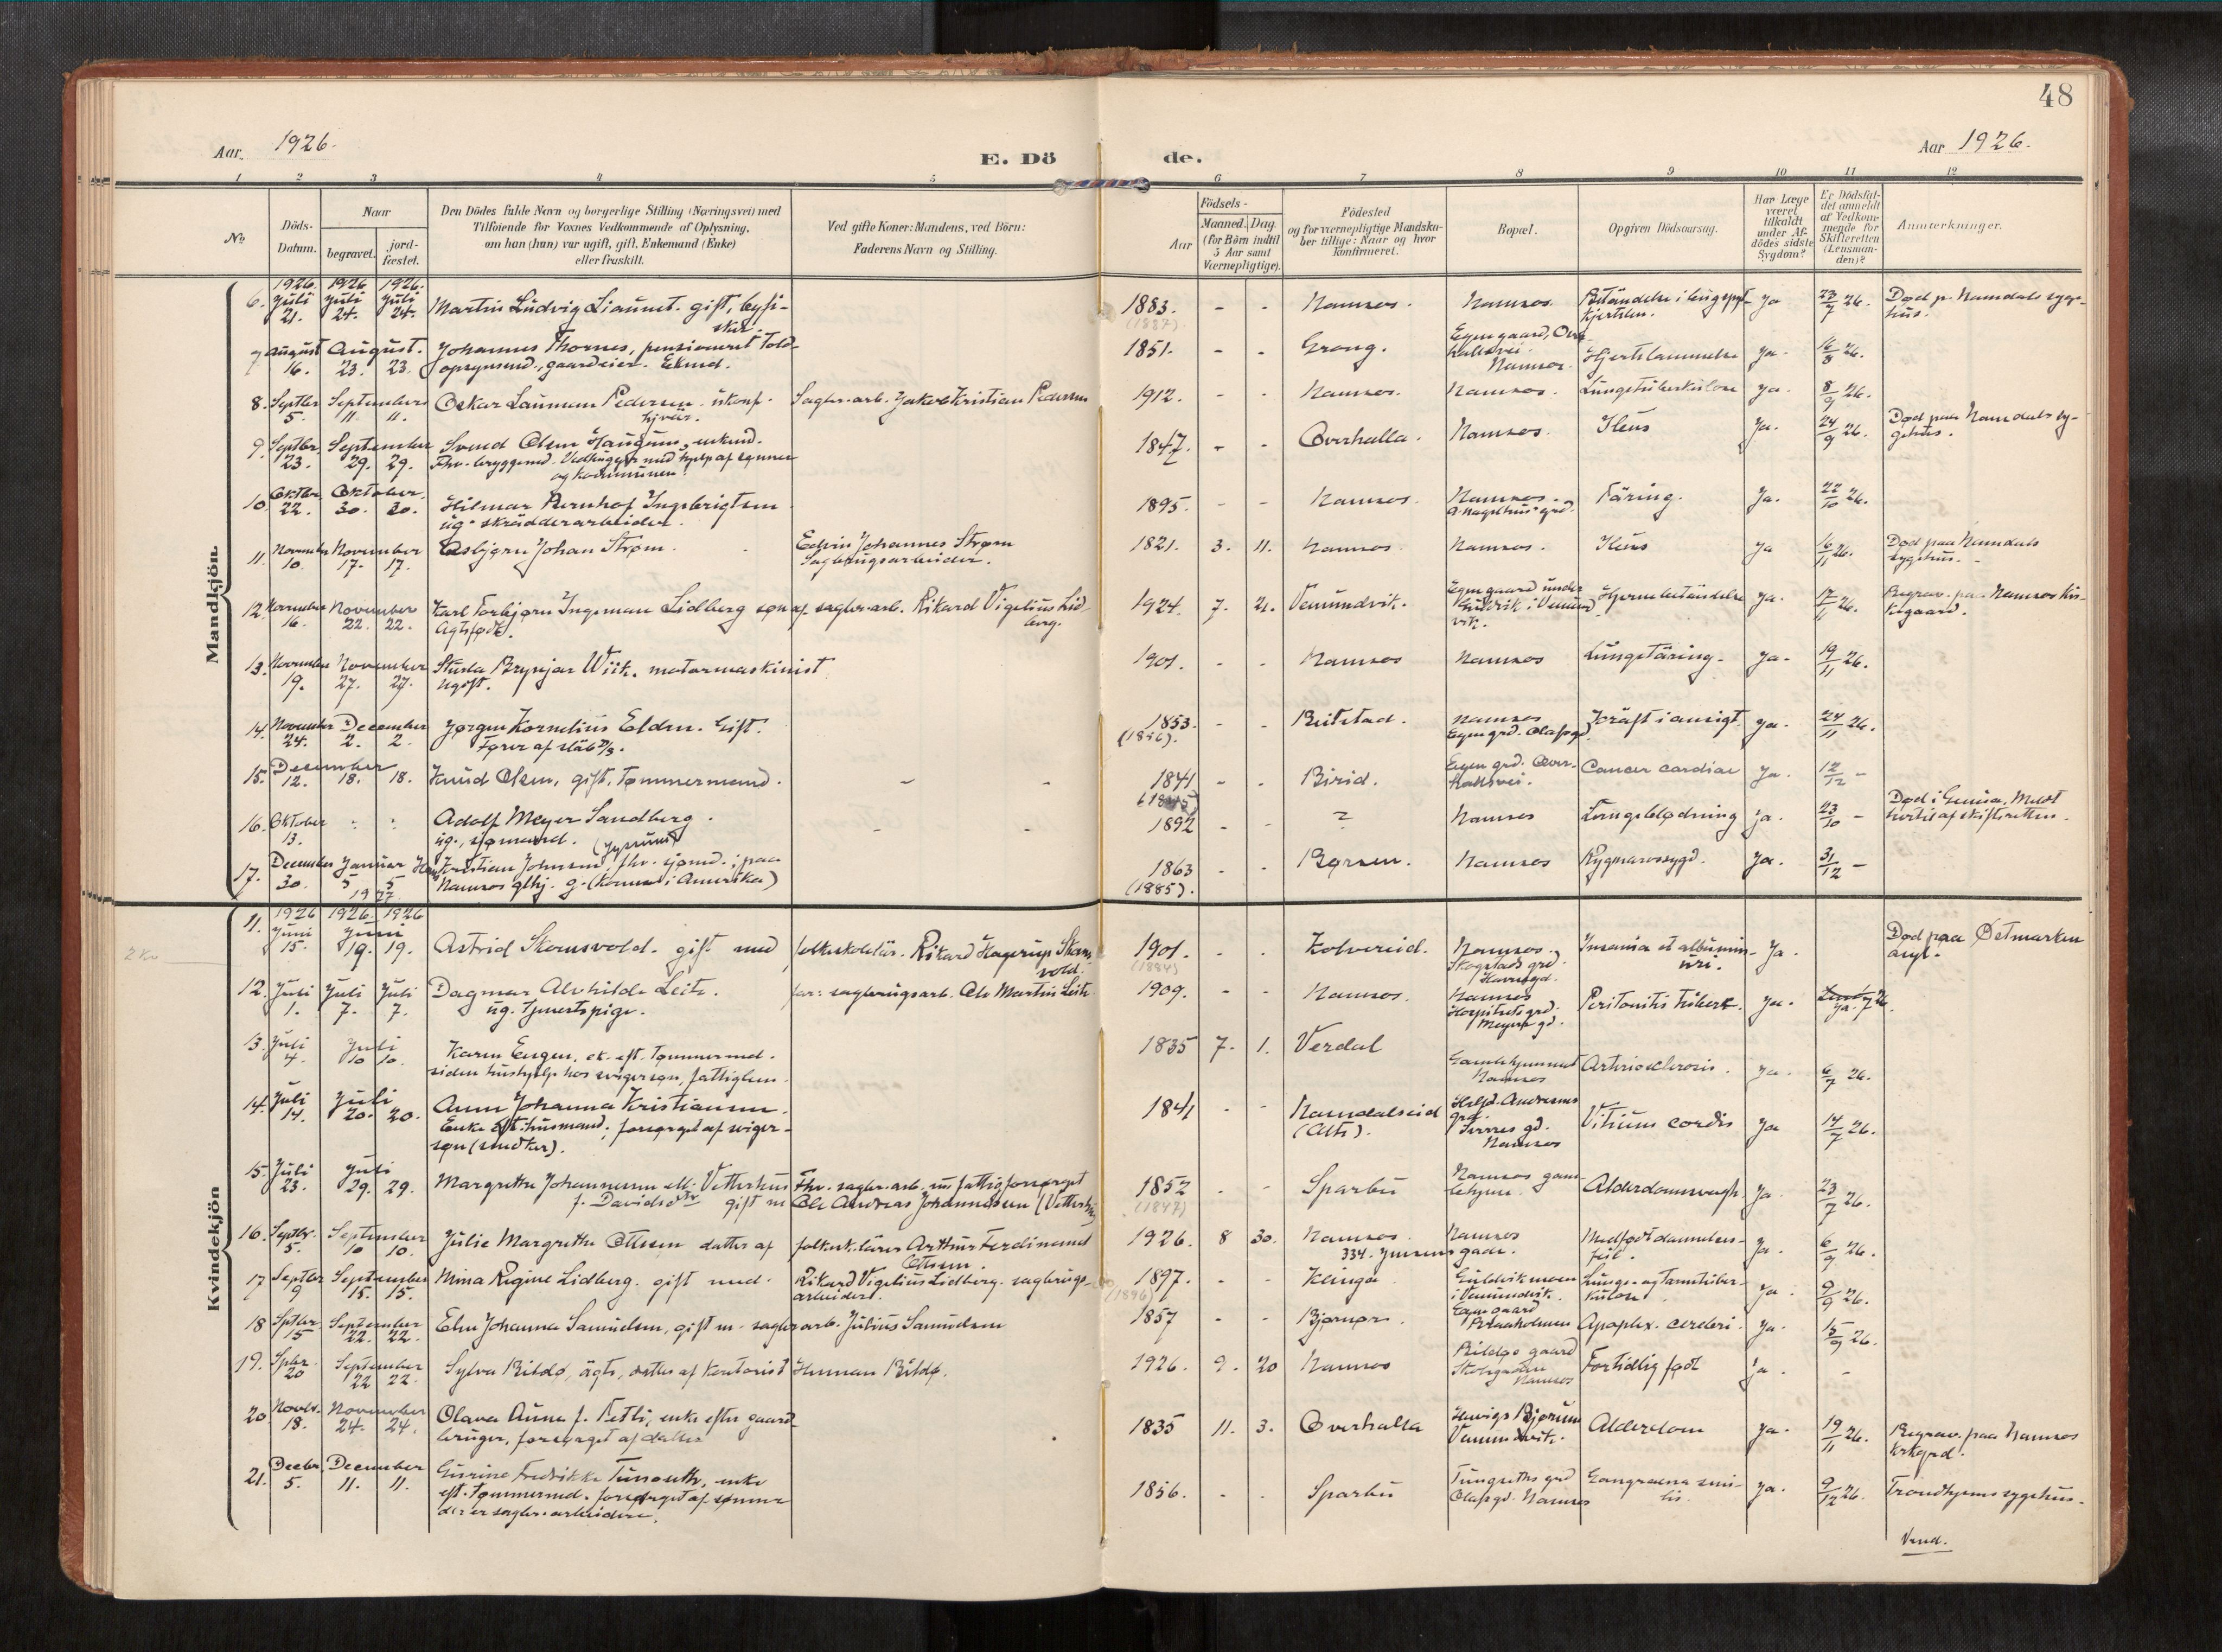 48
Aar. 1926.
E. Dö de.
Aar 1926.
1 2 3 4 5 6 7 8 9 10 11 12
No.
Döds-Datum.
Naar
begravet.
jord-fæstet.
Den Dödes fulde Navn og borgerlige Stilling (Næringsvei) med
Tilföiende for Voxnes Vedkommende af Oplysning,
om han (hun) var ugift, gift, Enkemand (Enke)
eller fraskilt.
Ved gifte Koner: Mandens, ved Börn:
Faderens Navn og Stilling.
Födsels-
Aar
Maaned.
Dag.
(for Börn indtil
5 Aar samt
Værnepligtige).
Födested
og for værnepligtige Mandska-
ber tillige: Naar og hvor
konfirmeret.
Bopæl.
Opgiven Dödsaarsag.
Har Læge
været
tilkaldt
under Af-
dödes sidste
Sygdom?
Er Dödsfal-
det anmeldt
af Vedkom-
mende for
Skifteretten
(Lensman-
den)?
Anmærkninger.
Mandkjön.
1926. 1926 1926.
6. Juli 21. Juli 24. Juli 24. Martin Ludvig gift, 1883. - - Namsos. Namsos. Ja 23/7 26. Død p. Namdals syge-
hus.
(1887)
7 August 16. August. 23. 23. Johannes Thornes, pensioneret Told-
opsynsmd., gaardeier. Ekmd. 1851. - - Grong. Egen gaard, Over-
hallsvei.
Namsos. Hjertelammelse Ja. 16/8 26.
8. Septbr 5. September 11. 11. Oskar Lauman Pedersen ukonf. Sagbr.arb. Jakob Kristian Pedersen 1912. - - Namsos. Namsos. Lungetuberkulose ja. 8/9 26.
9. Septbr 23. September 29. 29. Svend Olsen Haugum, enkmd.
Fhv. bryggemd. Vedhugger med hjelp af sønner
og kommunen. 1847. - - Overhalla. Namsos. Ileus Ja. 24/9 26. Død paa Namdals sy-
gehus.
10. Oktbr 22. Oktober. 30. 30. Hilmar Bernhof Ingebrigtsen
ug. skrædderarbeider. 1895. - - Namsos. Namsos. Tæring. Ja. 22/10 26.
11. November 10. November 17. 17. Asbjørn Johan Strøm. Edvin Johannes Strøm
Sagbrugsarbeider. 1821. 3. 11. Namsos. Namsos. Ileus ja 16/11 26. Død paa Namdals
sygehus.
12. November 16. November 22. 22. Karl Torbjørn Ingeman Lidberg søn af sagbr.arb. Rikard Vigelius Lid-
berg.
Ægtefødt. 1924. 7. 21. Vemundvik. Egen gaard under
i Vemund-
vik. Hjernebetændelse ja. 17/11 26. Begrav. paa Namsos kir-
kegaard.
13. November 19. November 27. 27. Sturla Brynjar Wiik. motormaskinist
ugift. 1901. - - Namsos Namsos Lungetæring. Ja. 19/11 26.
14. November 24. December 2. 2. Jørgen Kornelius Elden. Gift.
Fører af 1853. - - Beitstad. Namsos
Egen grd. Olafsgd. Kræft i ansigt. ja. 24/11 26.
(1856).
15. Desember 12. 18. 18. Knud Olsen, gift, tømmermand. - - 1841 - - Birid. Egen grd. Over-
hallsvei. Cancer cardiae Ja. 12/12 -
(1845)
16. Oktober 13. Adolf Meyer Sandberg.
ug., sjømand. - - 1892 - - ? Namsos Lungeblødning ja. 23/10 - Død i
af skifteretten.
17. December 30. Januar 5 5 1927 Hans Kristian Johnsen fhv. sjømd.; paa
Namsos glhj. g. (Konen i Amerika) 1863 - - Børsen. Namsos Rygmarvssygd. Ja. 31/12 -
(1885).
Kvindekjön
1926 1926. 1926
11. Juni 15. Juni 19. 19. Astrid Skomsvold. gift med folkeskolelær. Rikard Hagerup Skoms-
vold. 1901. - - Kolvereid. Namsos.
Skogstads grd.
Havnegd. Insania et albumin-
uri. Ja. Død paa Østmarken
asyl.
(1884)
2 Kv
12. Juli 1. Juli 7. Juli 7. Dagmar Alvhilde Leite.
ug. tjenestpige. far: sagbrugsarb. Ole Martin Leite. 1909. - - Namsos. Namsos
Hospitals grd.
Meyers gd. Peritonitis tuberk. Ja.
13. Juli 4. Juli 10 10. Karen Engen, ek. eft. tømmermd.
siden hushjelp hos svigersøn, fattiglem. 1835 7. 1. Verdal Gamlehjemmet
Namsos Arteriosclerosis. ja. 6/7 26.
14. Juli 14. Juli 20. 20. Anne Johanna Kristiansen.
Enke eft. husmand, forsørget af sviger-
søn (snedker). 1841 - - Namdalseid
(Alts). Andersens
grd.
Sverres gd.
Namsos Vitium cordis Ja 14/7 26.
15. Juli 23. Juli 29. 29. Margrethe Johannesen ell. Vetterhus
f. Davidsdtr gift m Fhv. sagbr.arb. nu fattigforsørget
Ole Andreas Johannesen (Vetterhus) 1852 - - Sparbu Namsos gam-
lehjem. Alderdomssvagh. Ja. 23/7 26.
(1847)
16. Septbr. 5. September 10 10. Julie Margrethe Ottesen datter af folkesk.lærer Arthur Ferdinand
Ottesen. 1926. 8 30. Namsos. Namsos
334. gade. Medfødt dannelses-
feil. Ja. 6/9 26.
17 Septbr 9 September 15. 15. Mina Regine Lidberg. gift med Rikard Vigelius Lidberg. sagbrugs-
arbeider. 1897. - - Klinga
i Vemundvik. Lunge- og Tarmtuber-
kulose ja. 9/9 26.
(1896)
18 Septbr 15 September 22. 22. Elen Johanna Samuelsen, gift m. sagbrarb. Julius Samuelsen 1857 - - Bjørnør. Egen gaard
Apoplex. cerebri. Ja. 15/9 26.
19. Spbr. 20 September 22 22. Sylva Bildø, ægte, datter af kontorist Herman Bildø. 1926. 9. 20 Namsos Bildøs gaard
Namsos For tidlig født Ja. -
20. Novbr. 18. November 24. 24. Olava Anna f. enke efter gaard-
bruger, forsørget af datter 1835 11. 3. Overhalla
Vemundvik. Alderdom Ja. 19/11 26. Begrav. paa Namsos
krkgrd.
21. Decbr 5. December 11. 11. Gurine Fredrikke enke
eft. tømmermd. forsørget af sønner
der er sagbr.arbeidere. 1856. - - Sparbu
Olafsgd. Namsos Gangraena seni-
lis. Ja. 9/12 26. Trondhjems sygehus.
Vend.